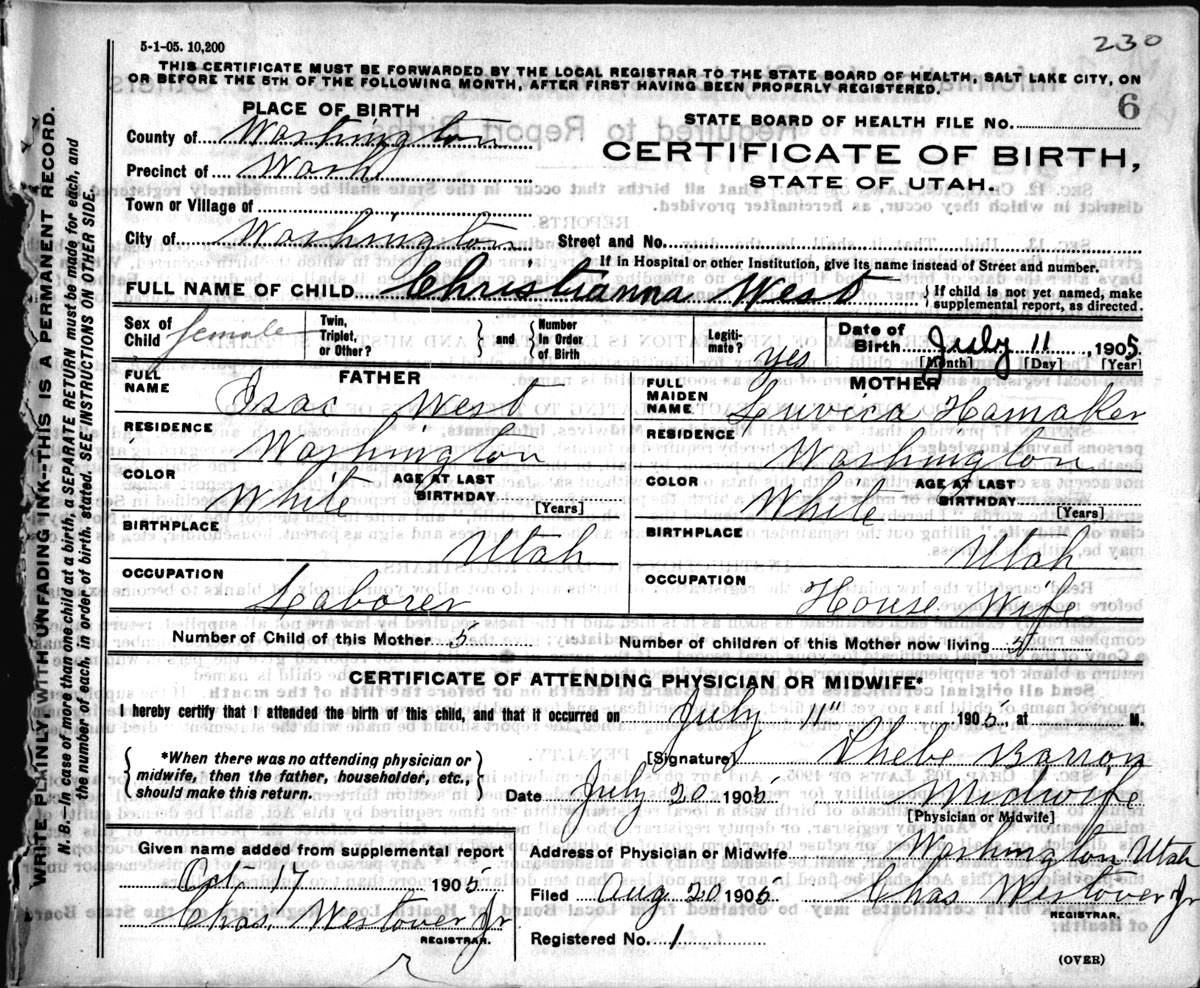 5-1-05. 10,200
230
THIS CERTIFICATE MUST BE FORWARDED BY THE LOCAL REGISTRAR TO THE STATE BOARD OF HEALTH, SALT LAKE CITY, ON
OR BEFORE THE 5TH OF THE FOLLOWING MONTH, AFTER FIRST HAVING BEEN PROPERLY REGISTERED.
PLACE OF BIRTH
STATE BOARD OF HEALTH FILE NO. 6
County of Washington
CERTIFICATE OF BIRTH,
Precinct of Wash
STATE OF UTAH.
Town or Village of
City of Washington Street and No.
If in Hospital or other Institution, give its name instead of Street and number.
FULL NAME OF CHILD Christianna West { If child is not yet named, make supplemental report, as directed.
Sex of Child female Twin, Triplet, or Other? } and { Number In Order of Birth Legiti- mate? yes Date of Birth July 11, 1905.
[Month] [Day] [Year]
FATHER MOTHER
FULL NAME Isac West FULL MAIDEN NAME Luvina Hamaker
RESIDENCE Washington RESIDENCE Washington
COLOR White AGE AT LAST BIRTHDAY [Years] COLOR White AGE AT LAST BIRTHDAY [Years]
BIRTHPLACE Utah BIRTHPLACE Utah
OCCUPATION Laborer OCCUPATION House Wife
Number of Child of this Mother 5 Number of children of this Mother now living
CERTIFICATE OF ATTENDING PHYSICIAN OR MIDWIFE*
I hereby certify that I attended the birth of this child, and that it occurred on July 11" 1905, at M.
{ *When there was no attending physician or midwife, then the father, householder, etc., should make this return. }
[Signature] Phebe Barron
Date July 20 1905 Midwife
[Physician or Midwife]
Given name added from supplemental report
Oct 17 1905
Chas. Westover Jr
REGISTRAR.
Address of Physician or Midwife Washington Utah
Filed Aug 20 1905 Chas Westover Jr
REGISTRAR.
Registered No. 1
(OVER)
WRITE PLAINLY WITH UNFADING INK—THIS IS A PERMANENT RECORD.
N. B.—In case of more than one child at a birth, a SEPARATE RETURN must be made for each, and
the number of each, in order of birth, stated. SEE INSTRUCTIONS ON OTHER SIDE.